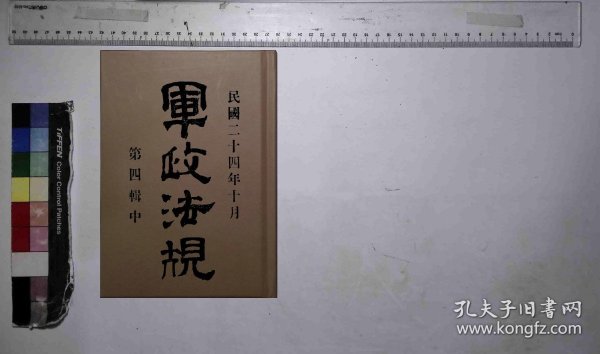 民國二十四年十月
軍政法規
第四輯中
TIFFEN Color Control Patches
孔夫子旧书网
www.kongfz.com